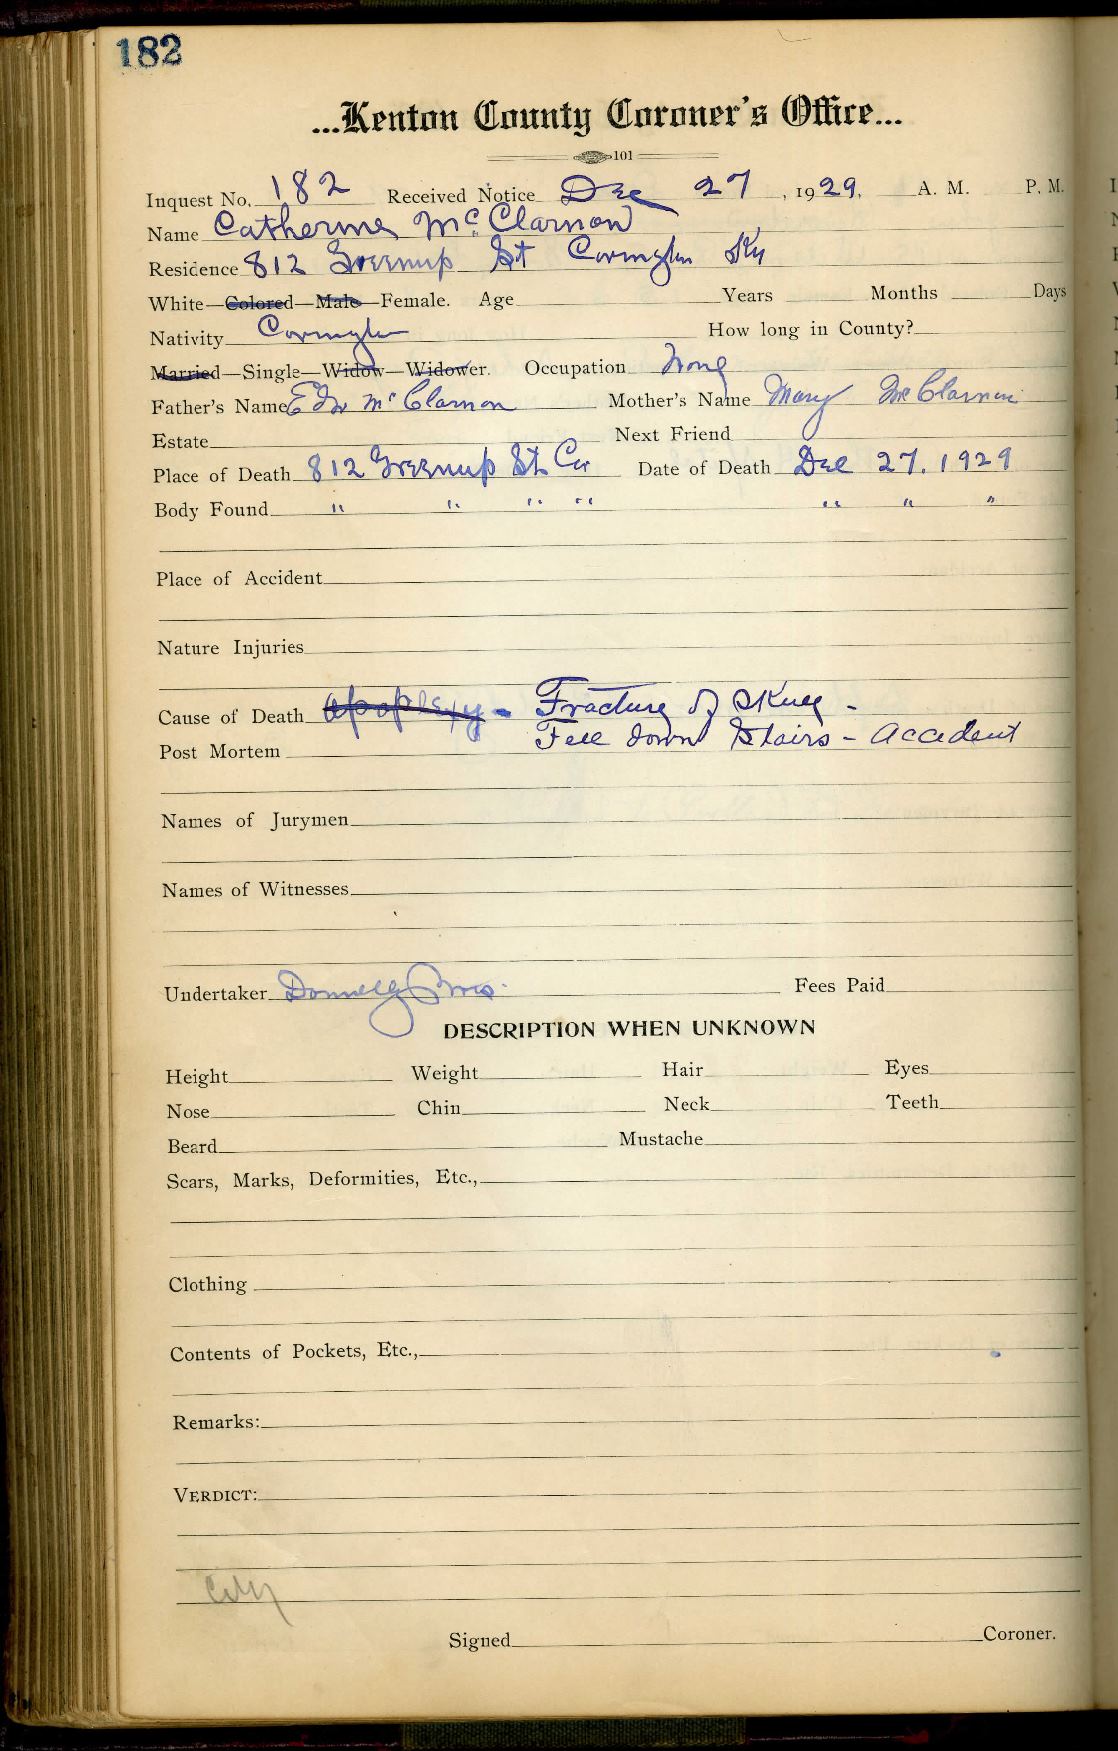 182
...Kenton County Coroner's Office...
101
Inquest No. 182 Received Notice Dec 27, 1929. A. M. P. M.
Name Catherine Mc Clarnon
Residence 812 Greenup St Covington Ky
White—Colored—Male—Female. Age Years Months Days
Nativity Covington How long in County?
Married—Single—Widow—Widower. Occupation None
Father's Name Edw Mc Clarnon Mother's Name Mary McClarnon
Estate Next Friend
Place of Death 812 Greenup St. Cov Date of Death Dec 27, 1929
Body Found " " " " " " "
Place of Accident
Nature Injuries
Cause of Death apoplexy - Fracture of Skull -
Post Mortem Fell down Stairs - Accident
Names of Jurymen
Names of Witnesses
Undertaker Donnelly Bros. Fees Paid
DESCRIPTION WHEN UNKNOWN
Height Weight Hair Eyes
Nose Chin Neck Teeth
Beard Mustache
Scars, Marks, Deformities, Etc.,
Clothing
Contents of Pockets, Etc.,
Remarks:
VERDICT:
City
Signed Coroner.